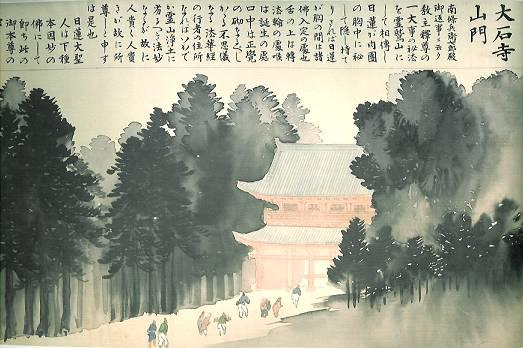 大石寺
山門
南條兵衛七郎殿
御返事に云く
教主釋尊の
一大事の秘法
を霊鷲山に
して相傳し
日蓮が肉團
の胸中に秘
して隠し持て
りされば日蓮
が胸の間は諸
佛入定の處也
舌の上は轉
法輪の處喉
は誕生の處
口中は正覺
の砌なるべし
かゝる不思議
なる法華經
の行者の住所
なればいかで
か霊山淨土に
劣るべき法妙
なるが故に
人貴く人貴
きが故に所
尊しと申す
は是也
日蓮大聖
人は下種
本因妙の
佛にして
即ち此の
御本尊の